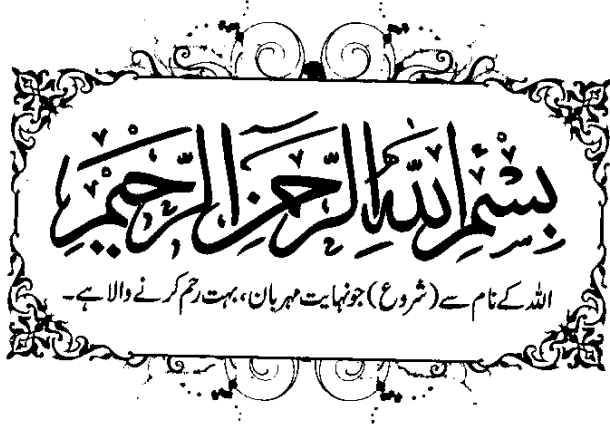 بِسْمِ اللهِ الرَّحْمٰنِ الرَّحِيْمِ
اللہ کے نام سے (شروع) جو نہایت مہربان، بہت رحم کرنے والا ہے۔